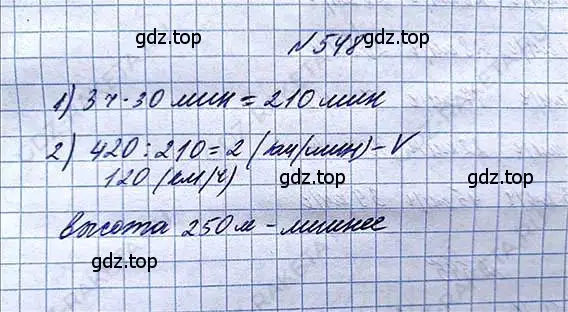 gdz.top
№548
gdz.top
1) 3ч·30 мин = 210 мин
gdz.top
2) 420:210=2 (км/мин)-V
120 (км/ч)
gdz.top
высота 250м - лишнее
gdz.top